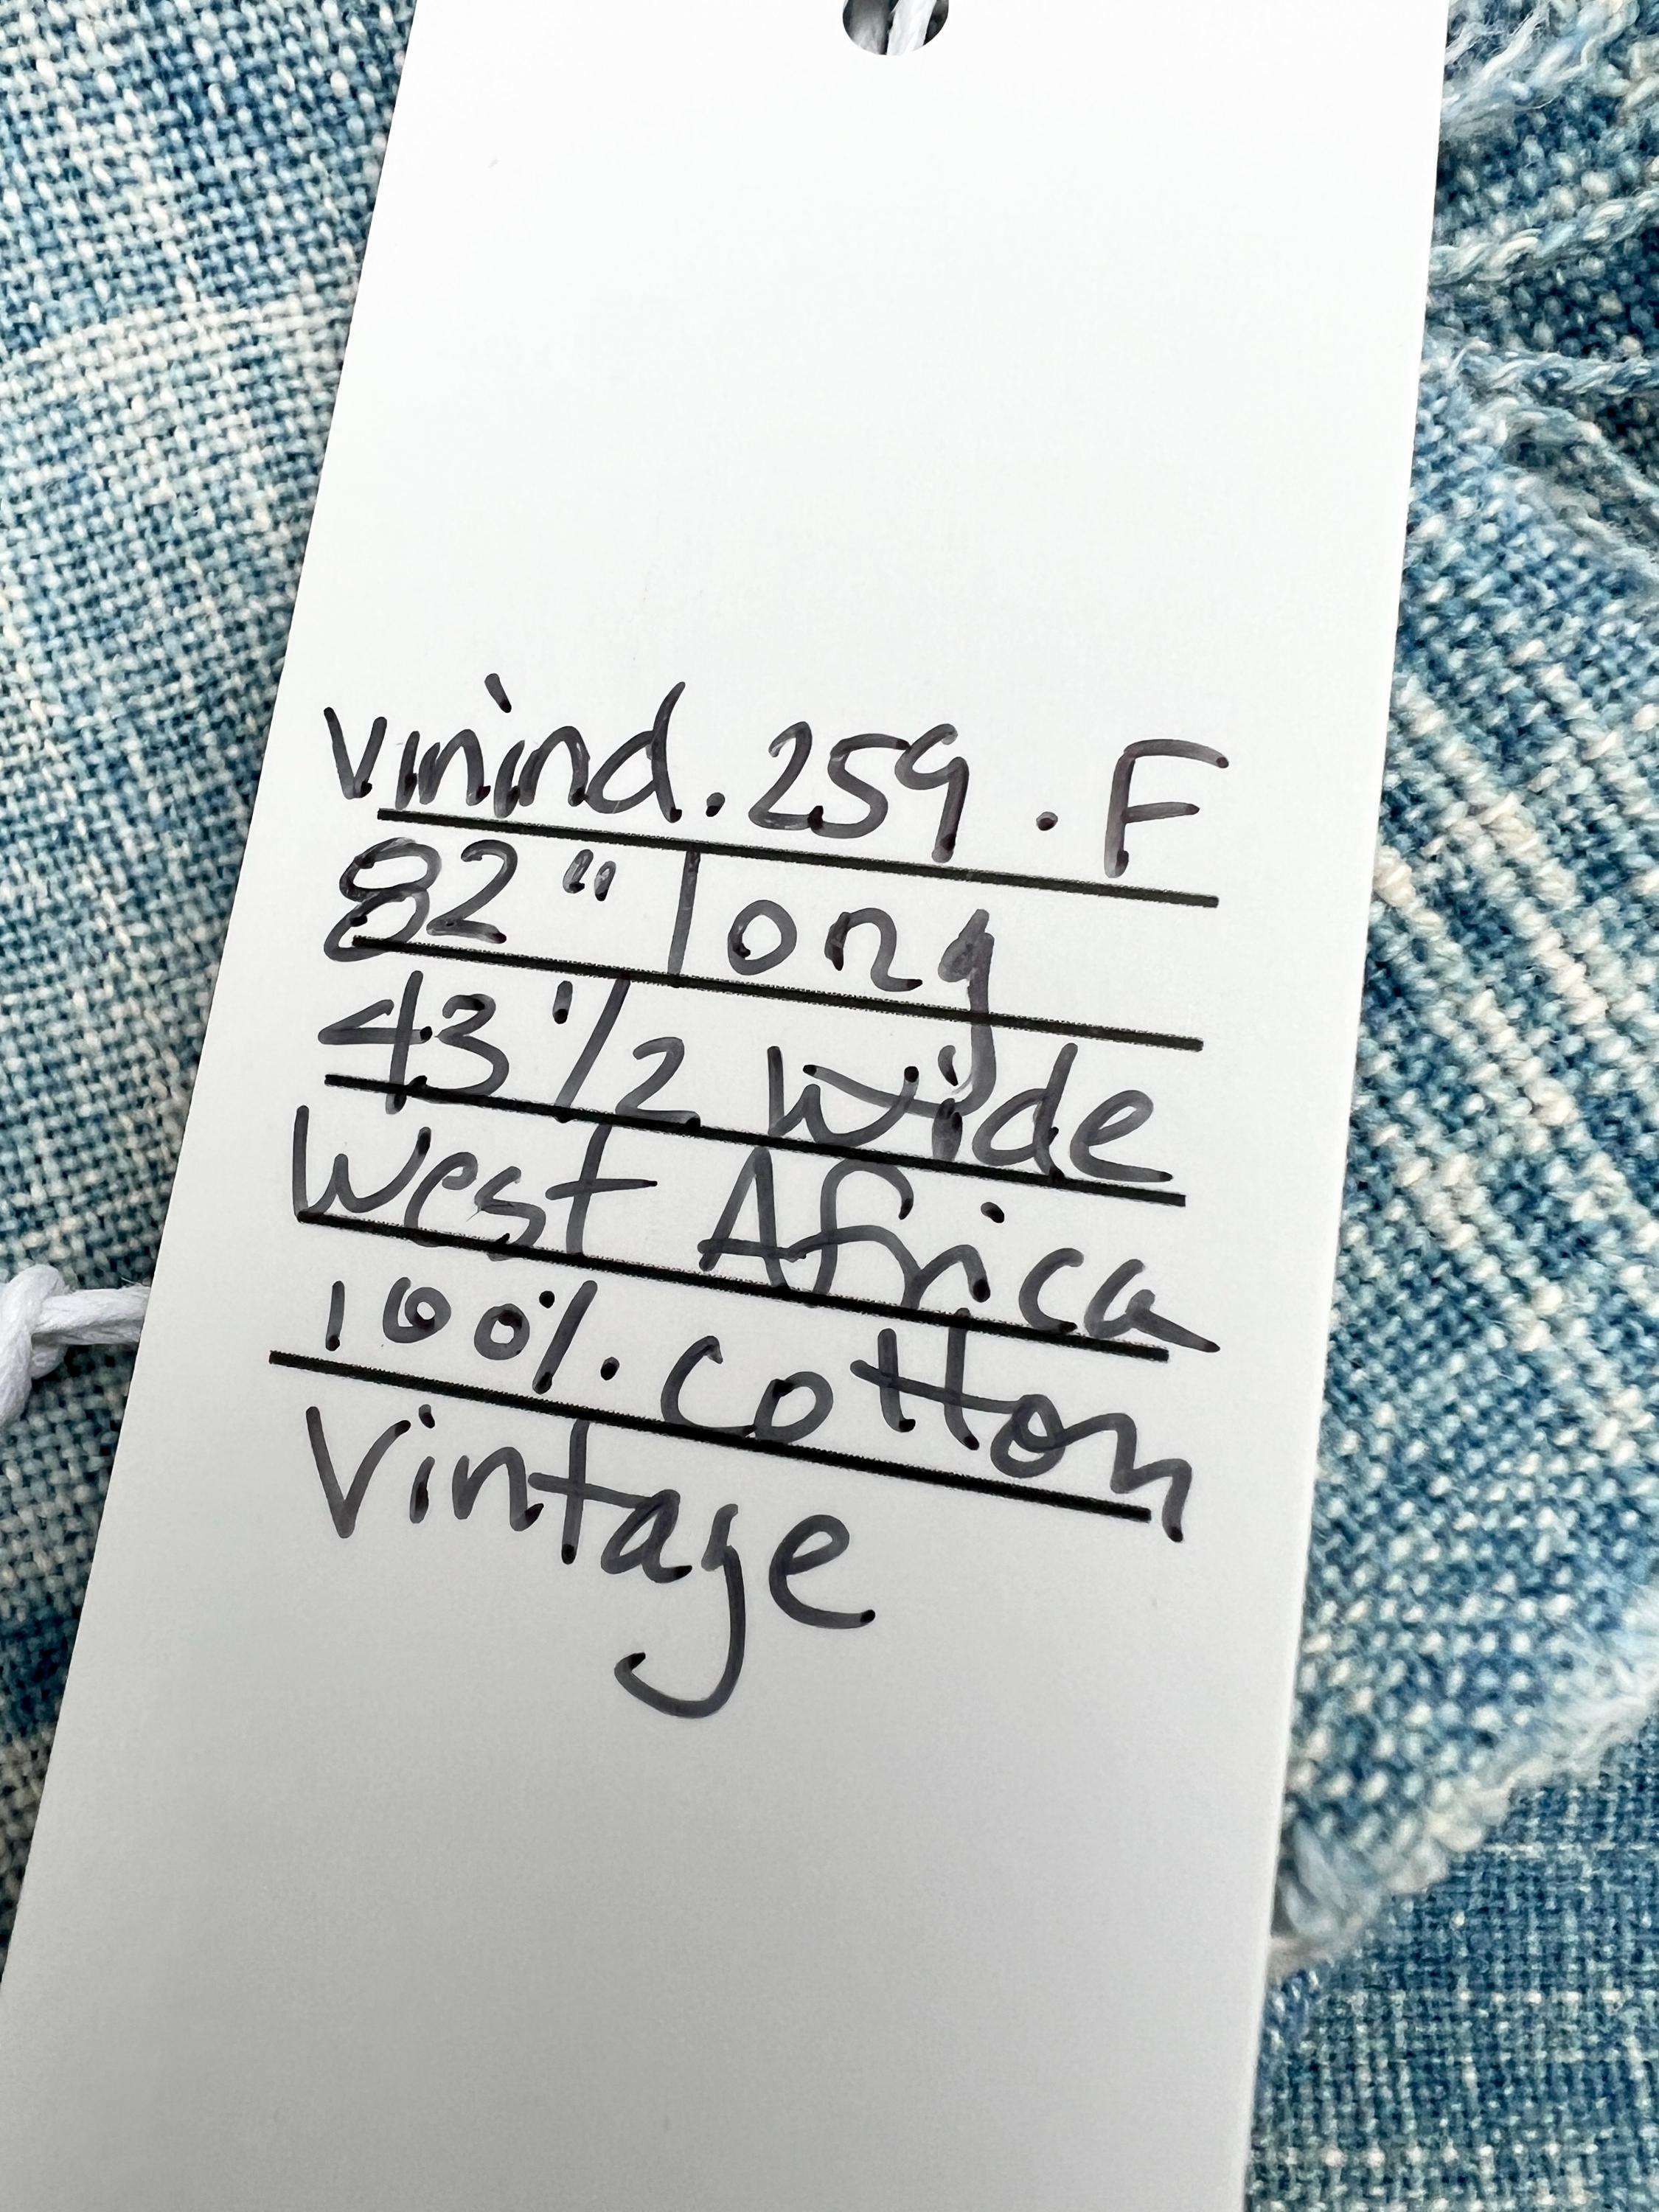 vmind.259.F
82" long
43 1/2 wide
West Africa
100% cotton
Vintage